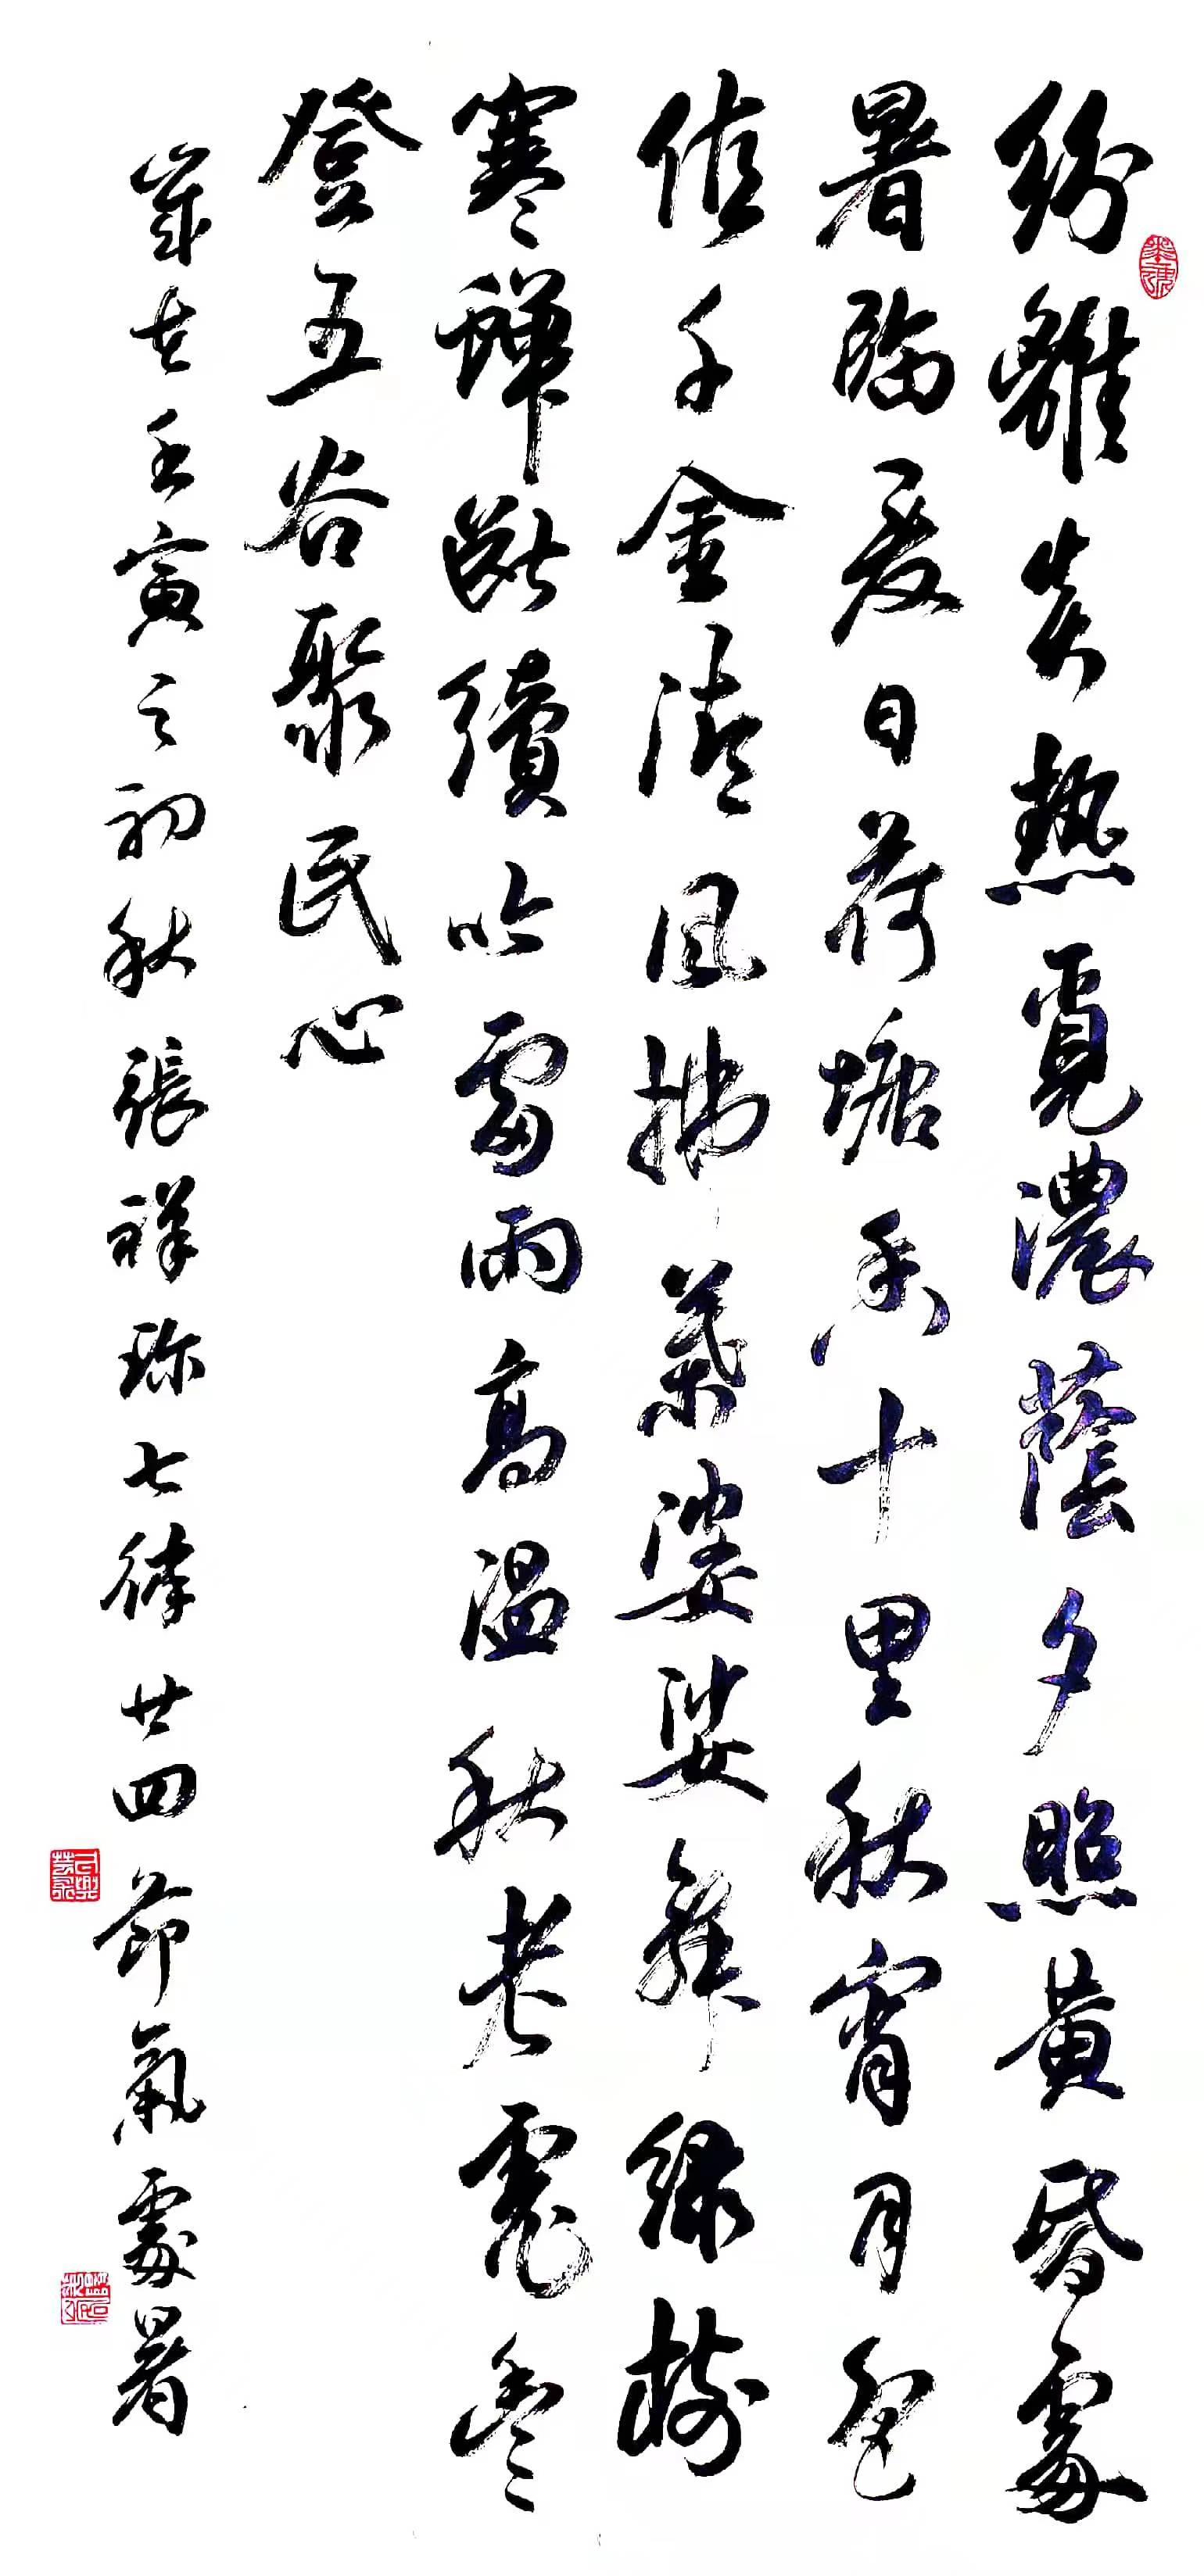 紛離炎热覓濃蔭夕照黃昏處
暑臨夏日荷塘香十里秋宵月色
值千金清風拂葉婆娑舞綠樹
寒蟬斷續吟雷雨高溫秋老虎豐
登五谷聚民心
歲在壬寅之初秋張祥珍七律廿四節氣處暑